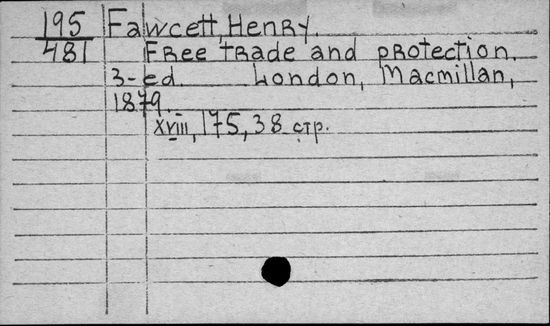 195 Fawcett, Henry.
481 Free trade and protection.
3-ed. London, Macmillan,
1879.
XVIII, 175, 38 стр.